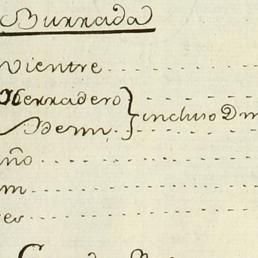 Burrada
Vientre
Herradero
Idem. } incluso Dn
año
m
es